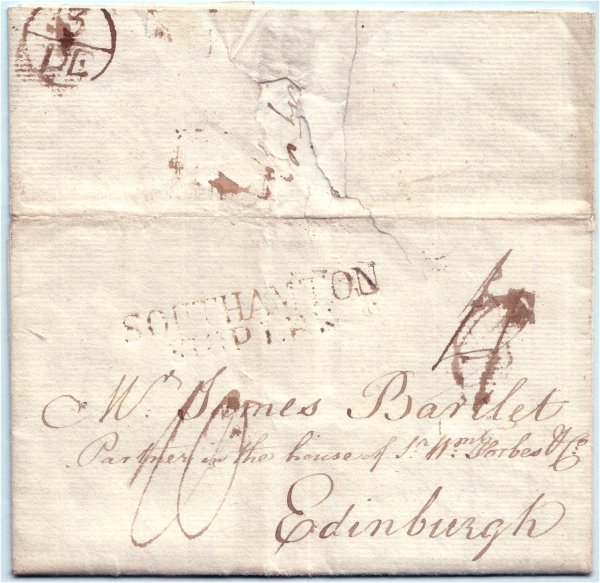 DE
SOUTHAMTON
SHIP LRE
Mr. James Bartlet
Partner in the house of Sr. Wm. Forbes & Co.
Edinburgh